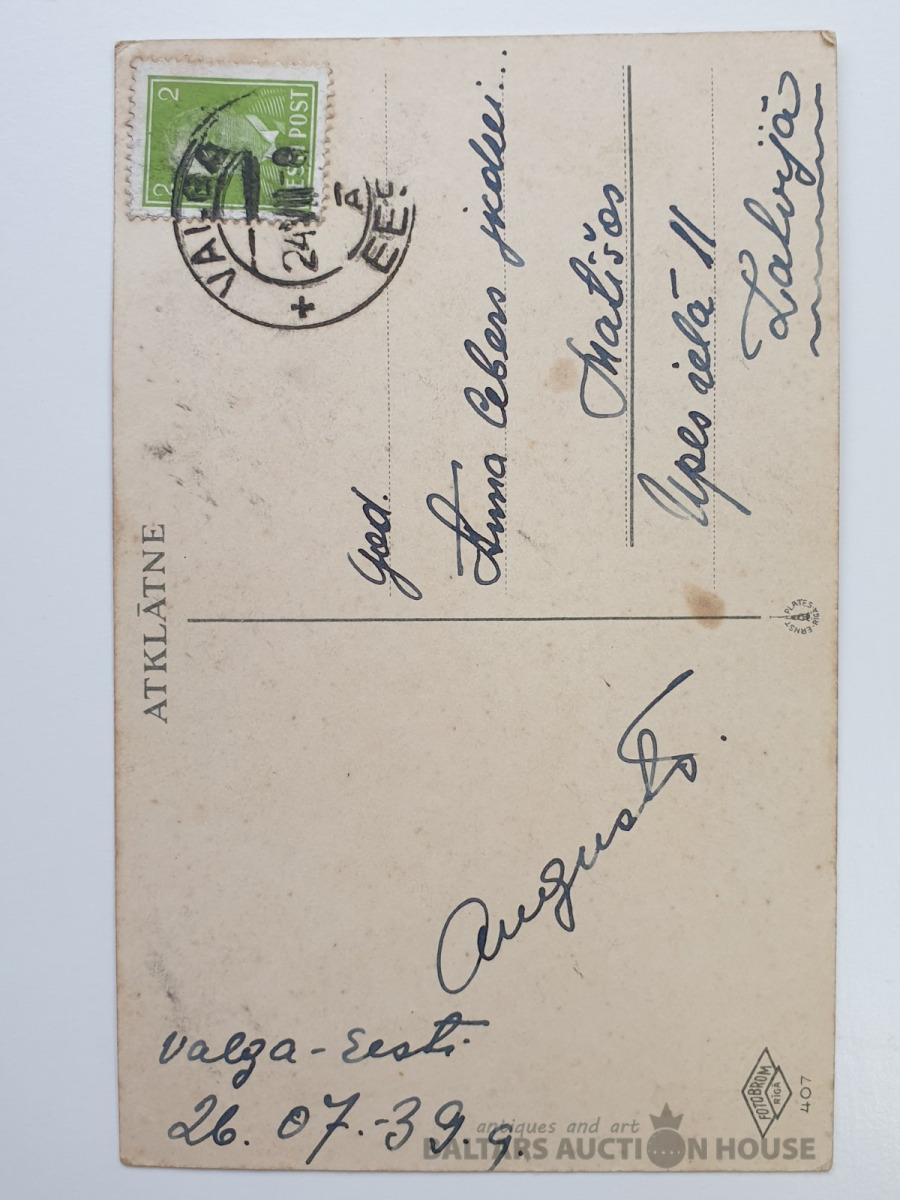 ATKLĀTNE
2 2
EESTI POST
VALGA
24
EESTI
+
God.
Anna Cebers jkdsei..
Matišos
Upes ielā 11
Latvijā
ERNST PLATES RIGA
Augusts.
Valga - Eesti.
26. 07.-39. g.
FOTOBROM
RĪGĀ
407
antiques and art
BALTARS AUCTION HOUSE